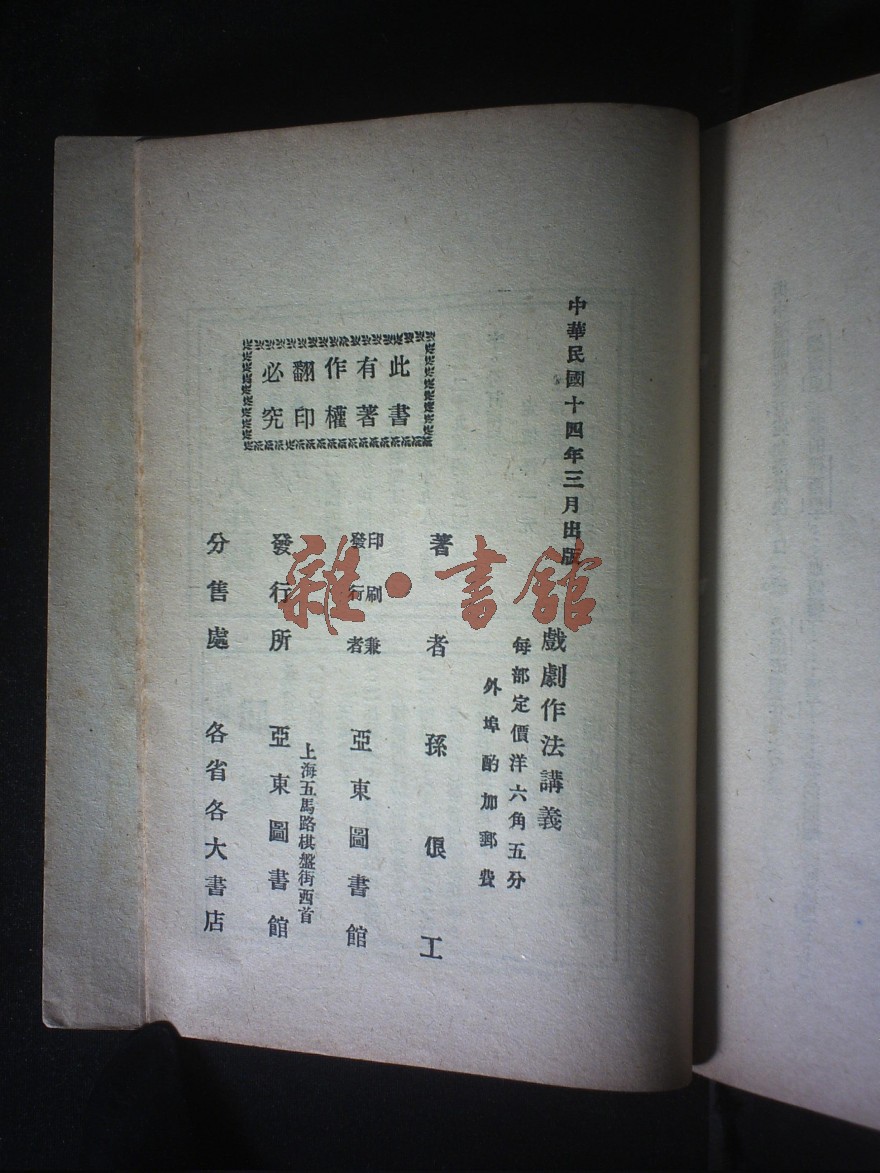 中華民國十四年三月出版
戲劇作法講義
每部定價洋六角五分
外埠酌加郵費
著者 孫俍工
印刷兼發行者 亞東圖書館
上海五馬路棋盤街西首
發行所 亞東圖書館
分售處 各省各大書店
此書
有著
作權
翻印
必究
雜·書館